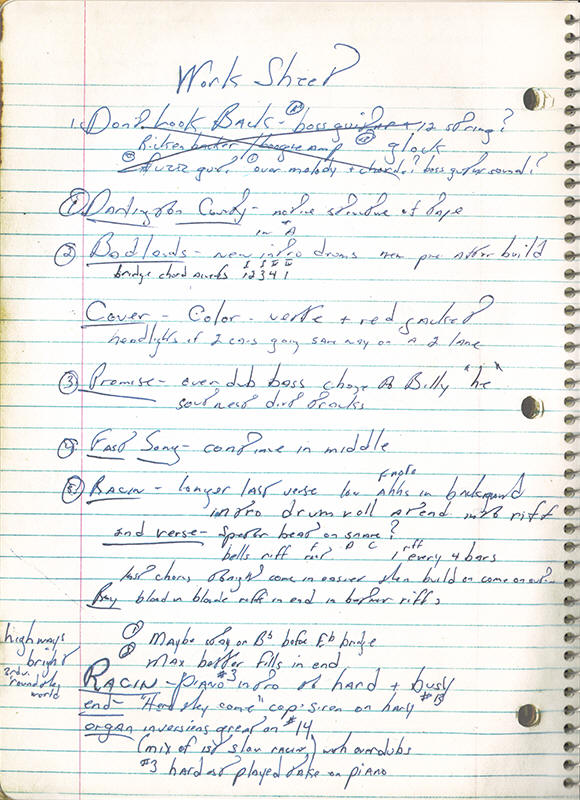 Work Sheet
1. Don't Look Back - boss guitar + 12 string?
Rickenbacker / boogie amp glock
fuzz guit. over melody + chords? boss guitar sound?
① Darlington County - native structure of tape
② Badlands - new intro drums new pre after build
in A
bridge chord accents 1 2 3 4 1
Cover - Color - verite + red jacket?
headlights of 2 cars going same way on a 2 lane
③ Promise - overdub bass change to Billy "he"
southwest dirt tracks
④ Fast Song - continue in middle
⑤ Racin - longer last verse low ahhs in background
intro drum roll at end into riff
2nd verse - beat on snare?
bells riff F D C 1 riff every 4 bars
last chorus tonight come in easier then build on come on out
Boy blond n blonde riffs in end in better riffs
highways
bright
around
world
① Maybe stay on Bb before Eb bridge
② Max better fills in end
Racin - piano #3 intro to hard + busy
end - "Here they come" cop siren on harp #15
organ inversions great on #14
(mix of 1st slow racin) with overdubs
#3 hardest played take on piano